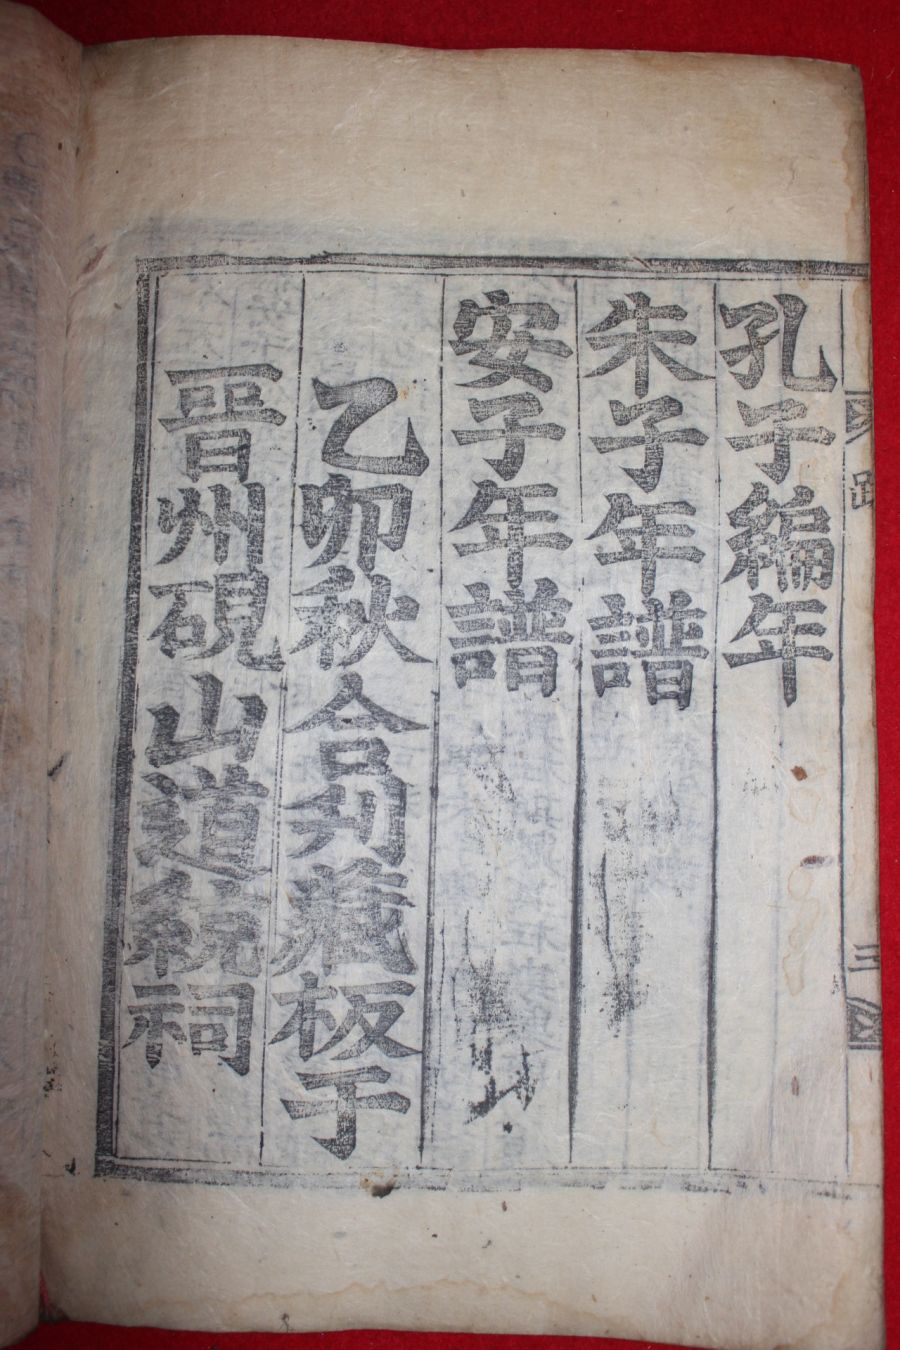 孔子編年
朱子年譜
安子年譜
乙卯秋合刋藏板于
晋州硯山道統祠
三